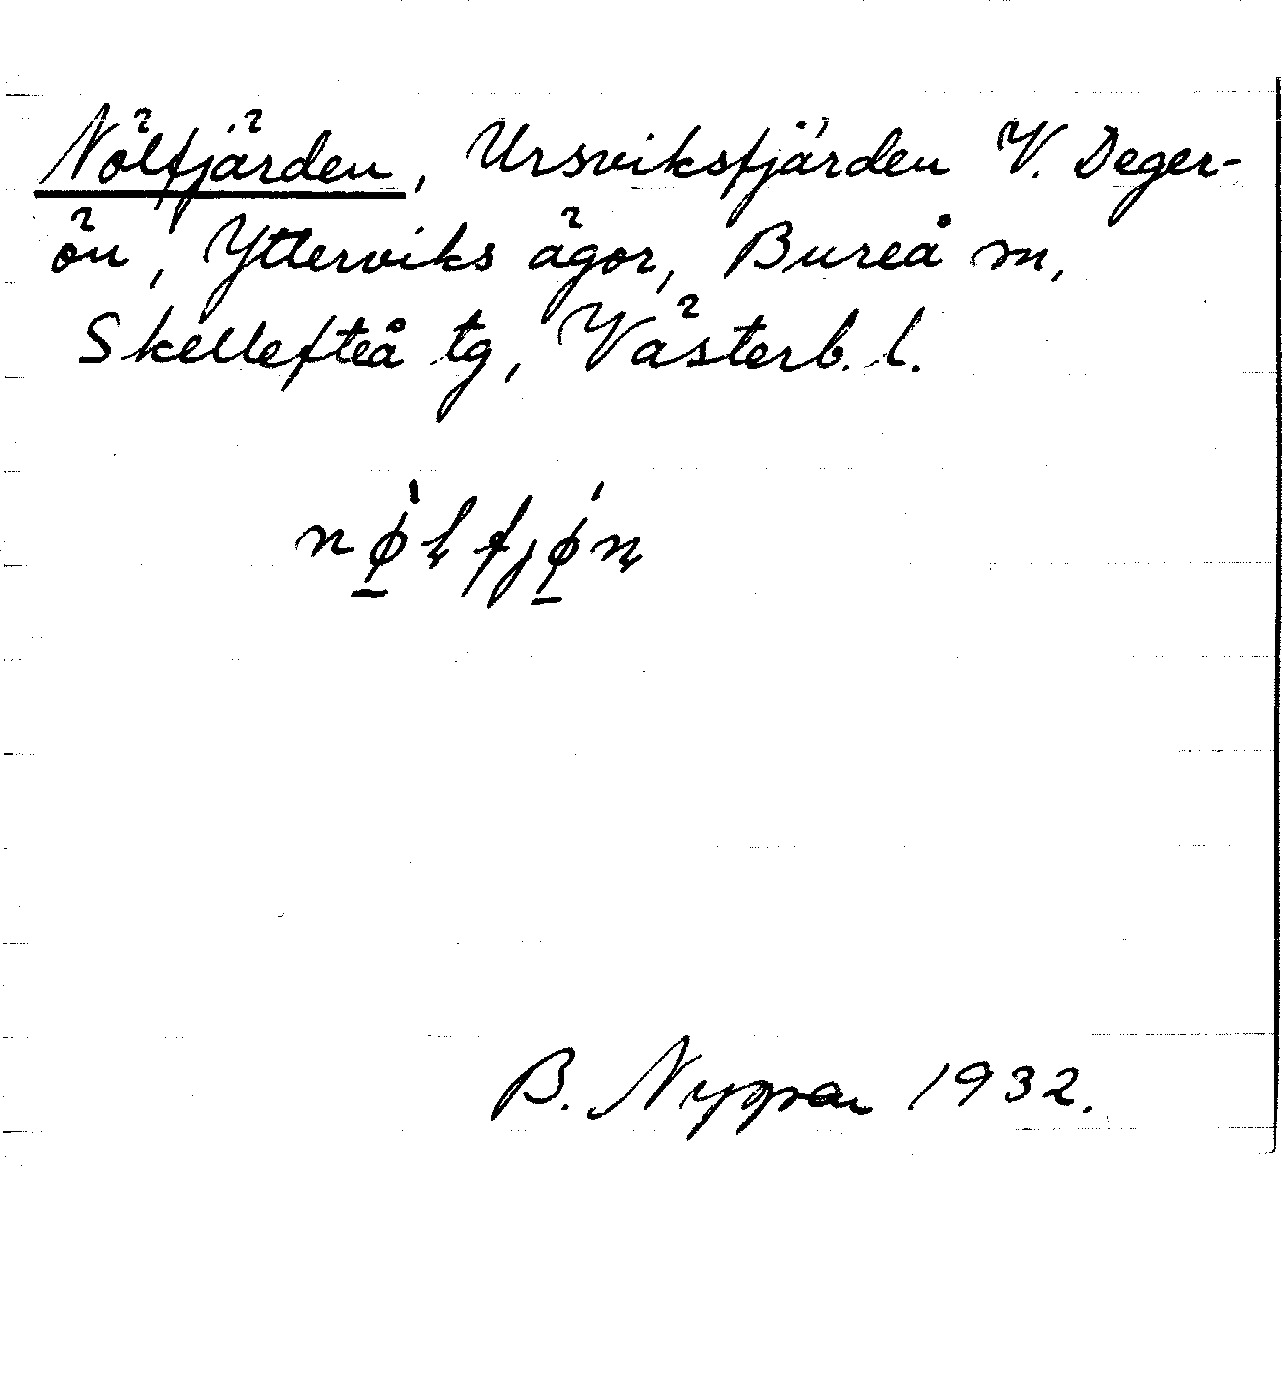 Nölfjärden, Ursviksfjärden V. Deger-
ön, Ytterviks ägor, Bureå sn,
Skellefteå tg, Västerb. l.
B. Nygren 1932.